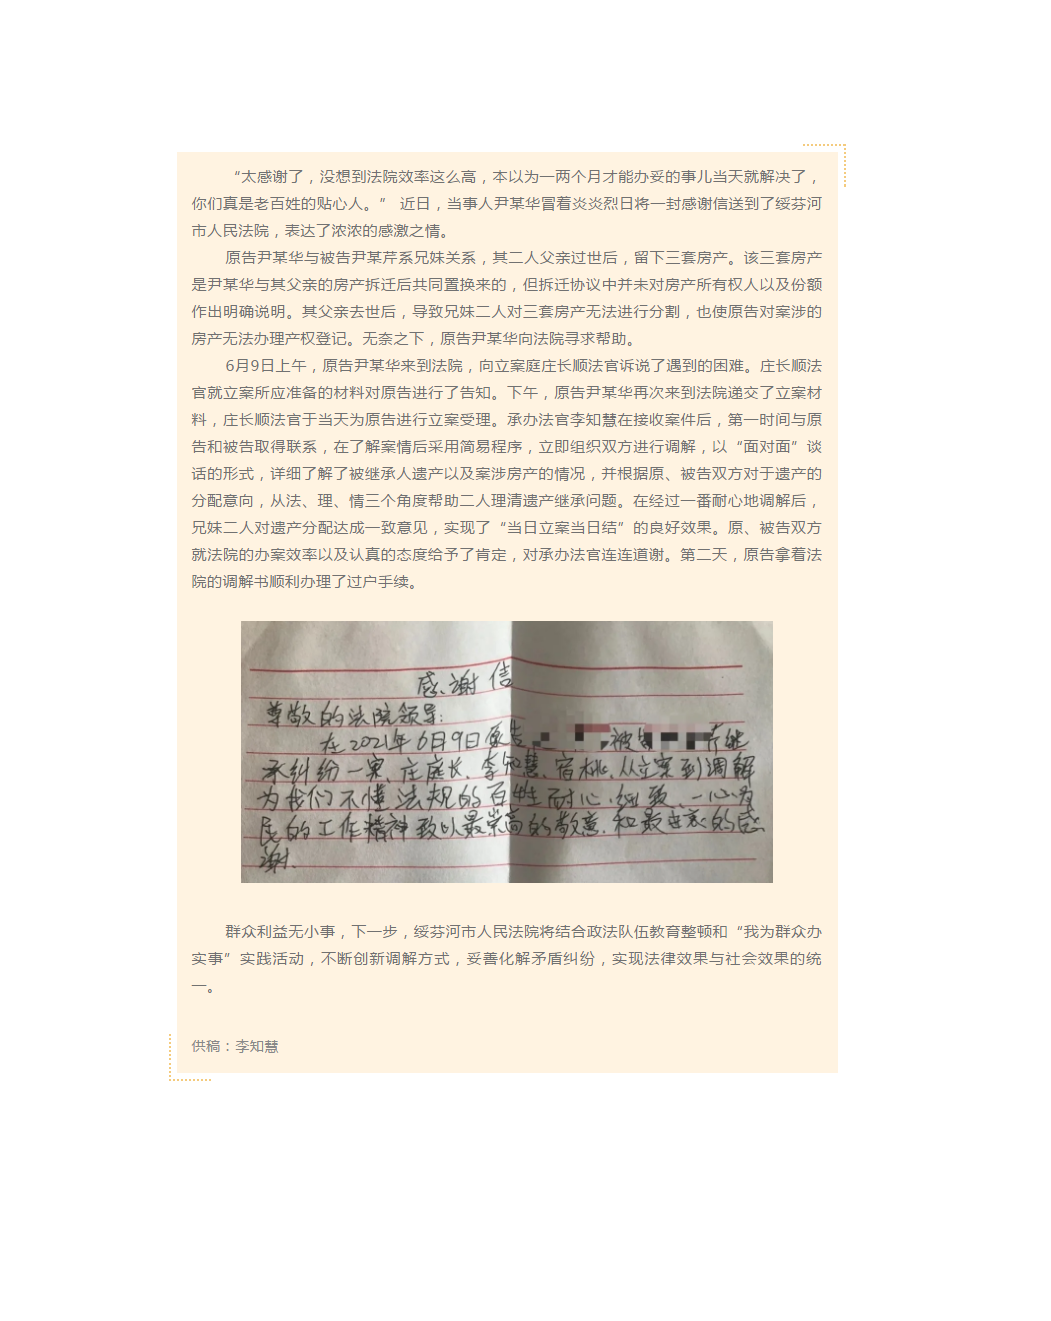 “太感谢了，没想到法院效率这么高，本以为一两个月才能办妥的事儿当天就解决了，
你们真是老百姓的贴心人。” 近日，当事人尹某华冒着炎炎烈日将一封感谢信送到了绥芬河
市人民法院，表达了浓浓的感激之情。
原告尹某华与被告尹某芹系兄妹关系，其二人父亲过世后，留下三套房产。该三套房产
是尹某华与其父亲的房产拆迁后共同置换来的，但拆迁协议中并未对房产所有权人以及份额
作出明确说明。其父亲去世后，导致兄妹二人对三套房产无法进行分割，也使原告对案涉的
房产无法办理产权登记。无奈之下，原告尹某华向法院寻求帮助。
6月9日上午，原告尹某华来到法院，向立案庭庄长顺法官诉说了遇到的困难。庄长顺法
官就立案所应准备的材料对原告进行了告知。下午，原告尹某华再次来到法院递交了立案材
料，庄长顺法官于当天为原告进行立案受理。承办法官李知慧在接收案件后，第一时间与原
告和被告取得联系，在了解案情后采用简易程序，立即组织双方进行调解，以“面对面”谈
话的形式，详细了解了被继承人遗产以及案涉房产的情况，并根据原、被告双方对于遗产的
分配意向，从法、理、情三个角度帮助二人理清遗产继承问题。在经过一番耐心地调解后，
兄妹二人对遗产分配达成一致意见，实现了“当日立案当日结”的良好效果。原、被告双方
就法院的办案效率以及认真的态度给予了肯定，对承办法官连连道谢。第二天，原告拿着法
院的调解书顺利办理了过户手续。
感谢信
尊敬的法院领导：
在2021年6月9日原告 被告 芹继
承纠纷一案、庄庭长、李知慧、宿桃、从立案到调解
为我们不懂法规的百姓耐心、细致、一心为
民的工作精神致以最崇高的敬意、和最 的感
谢、
群众利益无小事，下一步，绥芬河市人民法院将结合政法队伍教育整顿和“我为群众办
实事”实践活动，不断创新调解方式，妥善化解矛盾纠纷，实现法律效果与社会效果的统
一。
供稿：李知慧